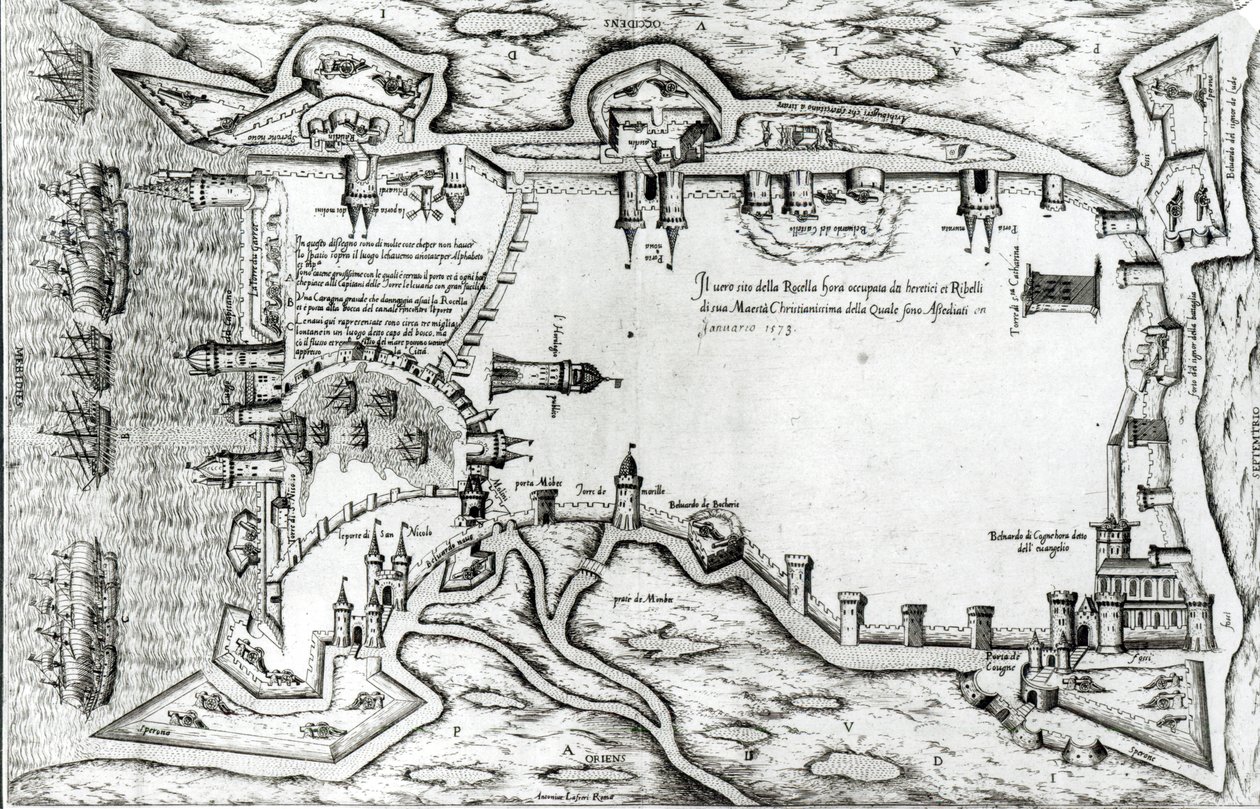 OCCIDENS
P A L V D I
MERIDIES
Sperone nouo
Rauelin
Rauelin
Archibugieri che essercitano a tirare
Sperone
Beluardo del signor de lude
fossi
la porta delli
dei molini
Porta
noua
Beluardo del Castelli
Porta
murata
Torre di sta Catharina
forto del signor della battaglia
La Torre du Garrot
In questo dissegno sono di molte cose che per non hauer
lo spatio sopra il luogo le hauemo annotate per Alphabeto
A
sono catene grossissime con le quali è serrato il porto et à ogni hora
che piace alli Capitani delle Torre le leuano con gran facilità
B
Vna Caragna grande che danneggia assai la Rocella
et è posta alla bocca del canale
C
Le naui qui rapresentate sono circa tre miglia
lontane in un luogo detto capo del bosco, ma
cō il flusso et del mare ponono uenire
appresso la Città
Il uero sito della Rocella hora occupata da heretici et Ribelli
di sua Maestà Christianissima della Quale sono Assediati en
Januario 1573.
l'Horologio
publico
A
B
Torre di S Nicolo
Molini
porta Mobec
Torre de morille
Beluardo de Bocherie
le porte di San Nicolo
Beluardo nouo
prate de Monbec
Beluardo di Cogne hora detto
dell' euangelio
Porta di
Cougne
fossi
fossi
Sperone
Sperone
P A L V D I
ORIENS
Antonius Lafreri Romae